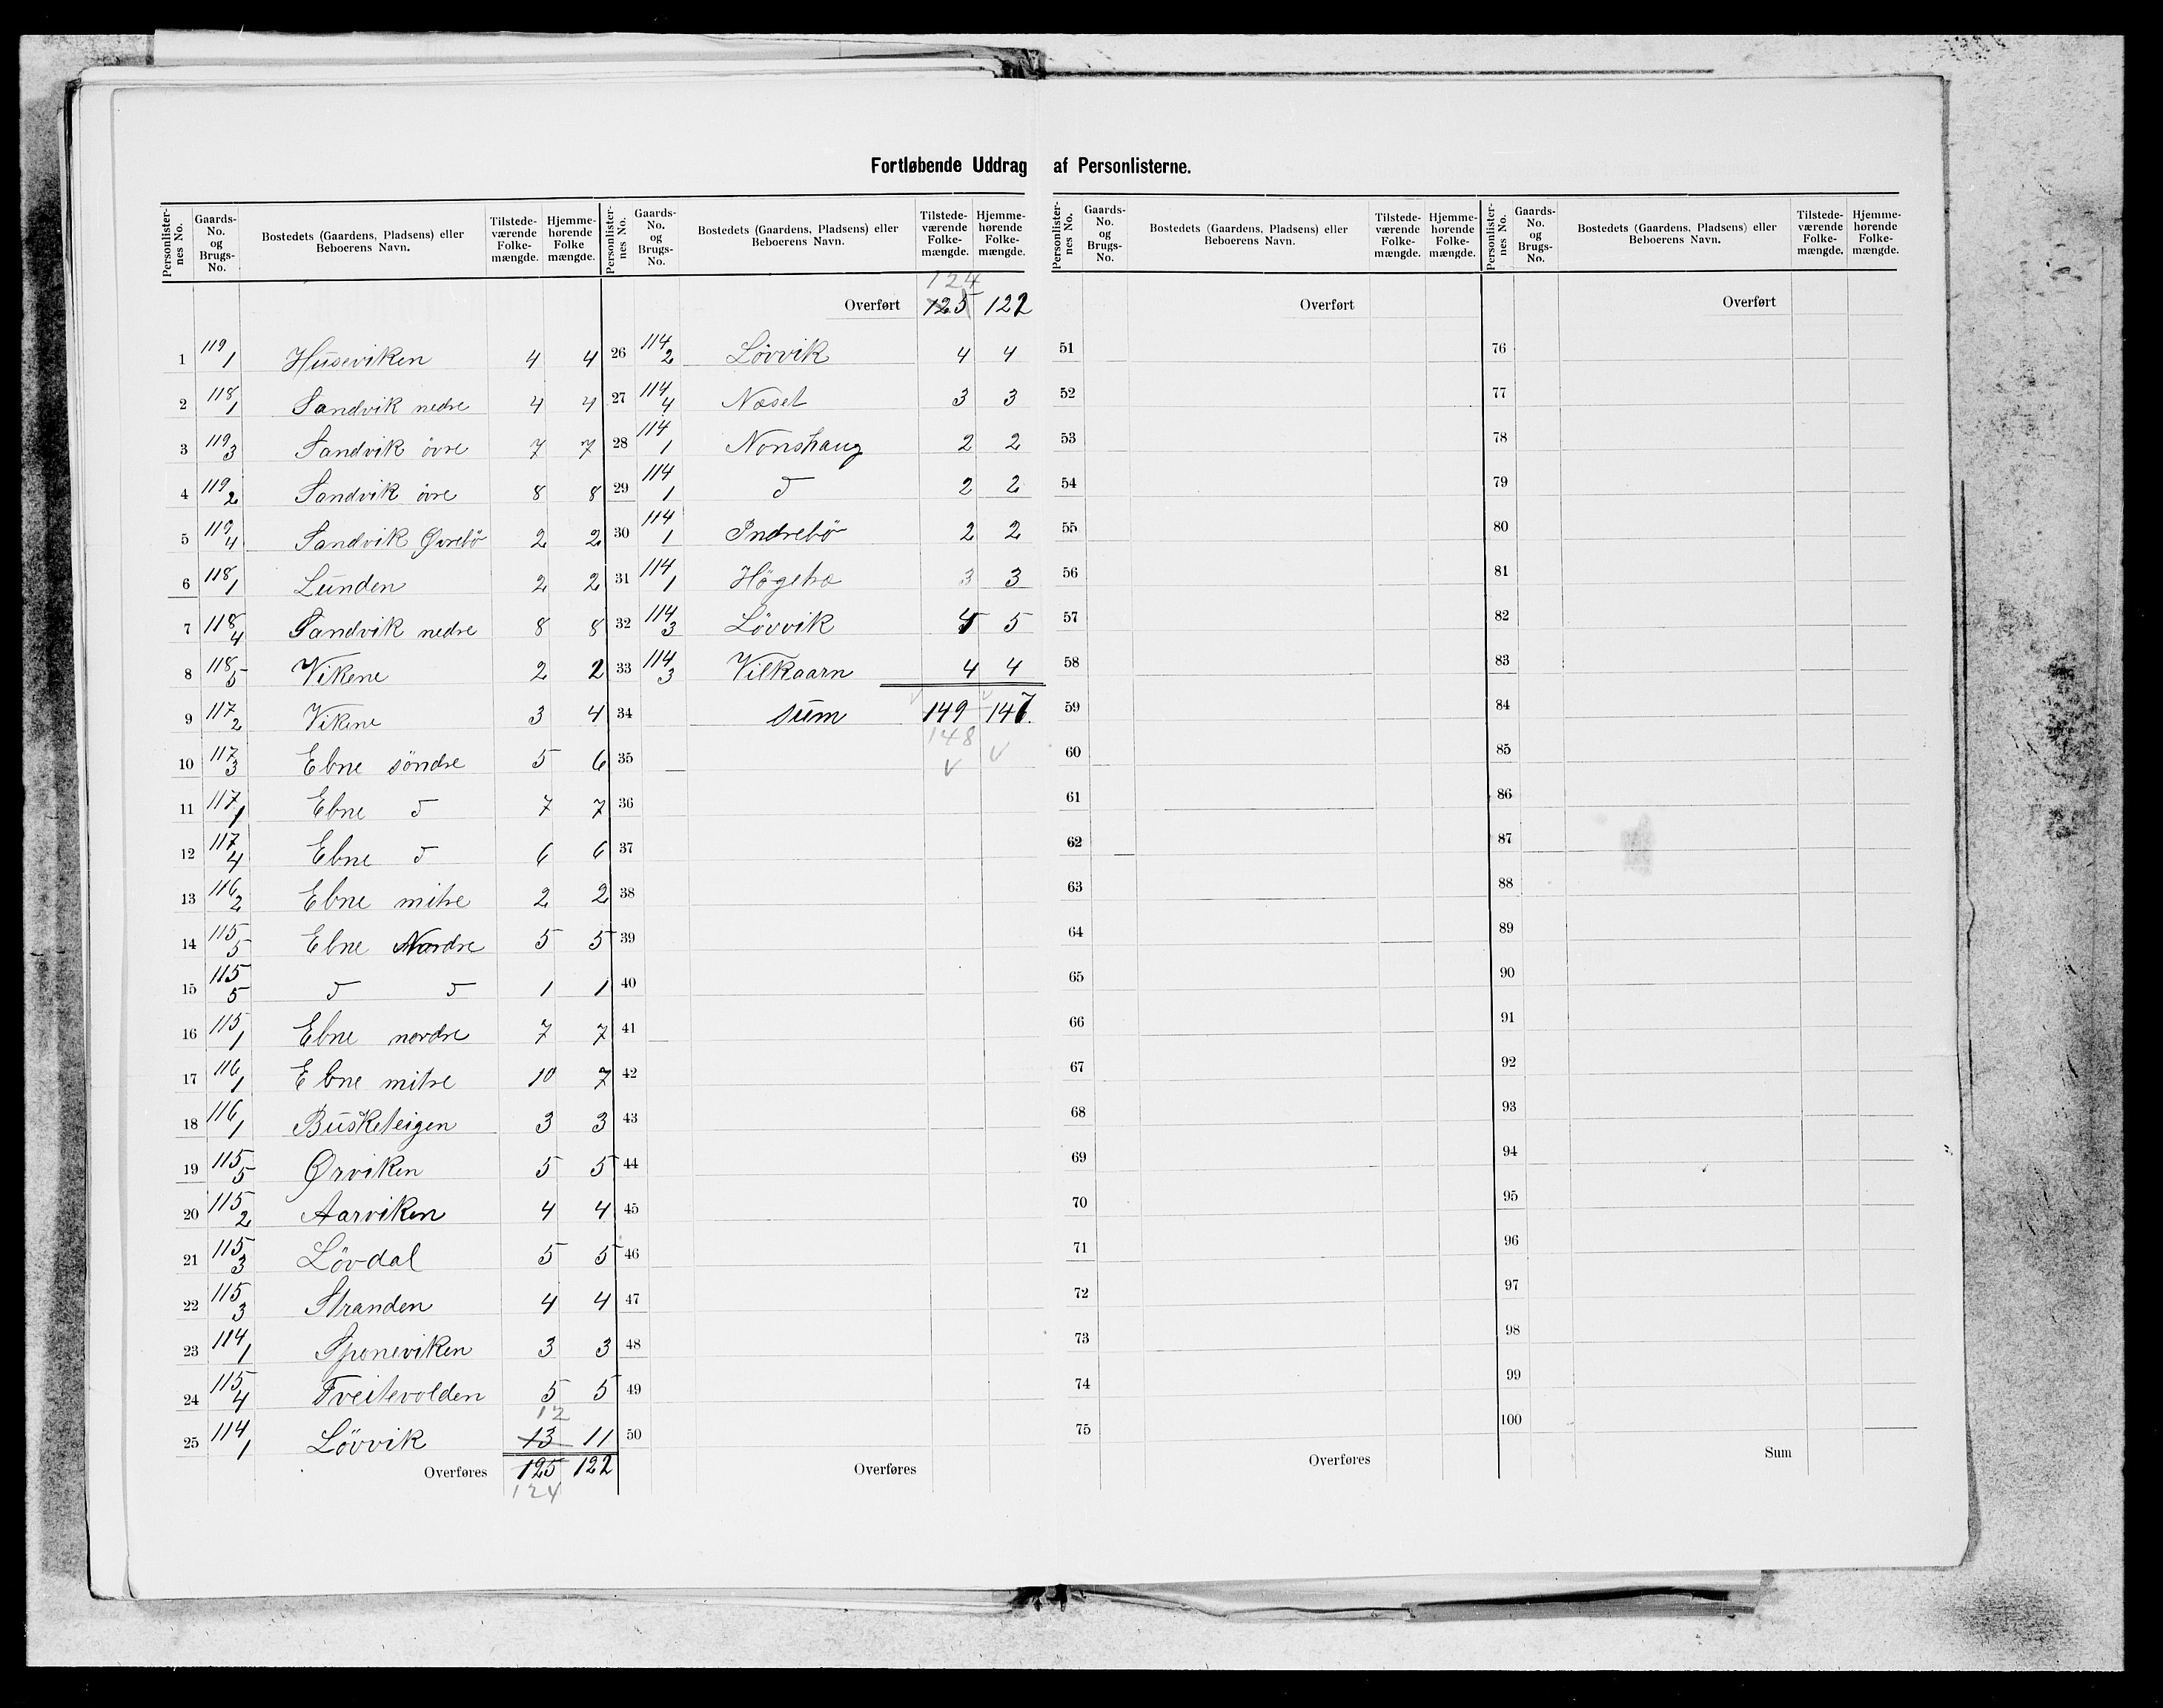 Fortløbende Uddrag af Personlisterne.
Personlister-nes No. | Gaards-No. og Brugs-No. | Bostedets (Gaardens, Pladsens) eller Beboerens Navn. | Tilstede-værende Folke-mængde. | Hjemme-hørende Folke mængde.
1 119/1 Huseviken 4 4
2 118/1 Sandvik nedre 4 4
3 119/3 Sandvik övre 7 7
4 119/2 Sandvik övre 8 8
5 119/4 Sandvik Øvrebö 2 2
6 118/1 Lunden 2 2
7 118/4 Sandvik nedre 8 8
8 118/5 Vikene 2 2
9 117/2 Vikene 3 4
10 117/3 Ebne söndre 5 6
11 117/1 Ebne d 7 7
12 117/4 Ebne d 6 6
13 116/2 Ebne mitre 2 2
14 115/5 Ebne Nordre 5 5
15 115/5 d d 1 1
16 115/1 Ebne nordre 7 7
17 116/1 Ebne mitre 10 7
18 116/1 Busketeigen 3 3
19 115/5 Ørviken 5 5
20 115/2 Aarviken 4 4
21 115/3 Lövdal 5 5
22 115/3 Stranden 4 4
23 114/1 Sponeviken 3 3
24 115/4 Tveitevolden 5 5
12
25 114/1 Lövvik 13 11
Overføres 125 122
124
Personlister-nes No. | Gaards-No. og Brugs-No. | Bostedets (Gaardens, Pladsens) eller Beboerens Navn. | Tilstede-værende Folke-mængde. | Hjemme-hørende Folke-mængde.
124
Overført 125 122
26 114/2 Lövvik 4 4
27 114/4 Næset 3 3
28 114/1 Nonshaug 2 2
29 114/1 d 2 2
30 114/1 Indrebö 2 2
31 114/1 Högebo 3 3
32 114/3 Lövvik 4 5
33 114/3 Vilkaarn 4 4
34 sum 149 147.
148
35
36
37
38
39
40
41
42
43
44
45
46
47
48
49
50
Overføres
Personlister-nes No. | Gaards-No. og Brugs-No. | Bostedets (Gaardens, Pladsens) eller Beboerens Navn. | Tilstede-værende Folke-mængde. | Hjemme-hørende Folke-mængde.
Overført
51
52
53
54
55
56
57
58
59
60
61
62
63
64
65
66
67
68
69
70
71
72
73
74
75
Overføres
Personlister-nes No. | Gaards-No. og Brugs-No. | Bostedets (Gaardens, Pladsens) eller Beboerens Navn. | Tilstede-værende Folke-mængde. | Hjemme-hørende Folke-mængde.
Overført
76
77
78
79
80
81
82
83
84
85
86
87
88
89
90
91
92
93
94
95
96
97
98
99
100
Sum